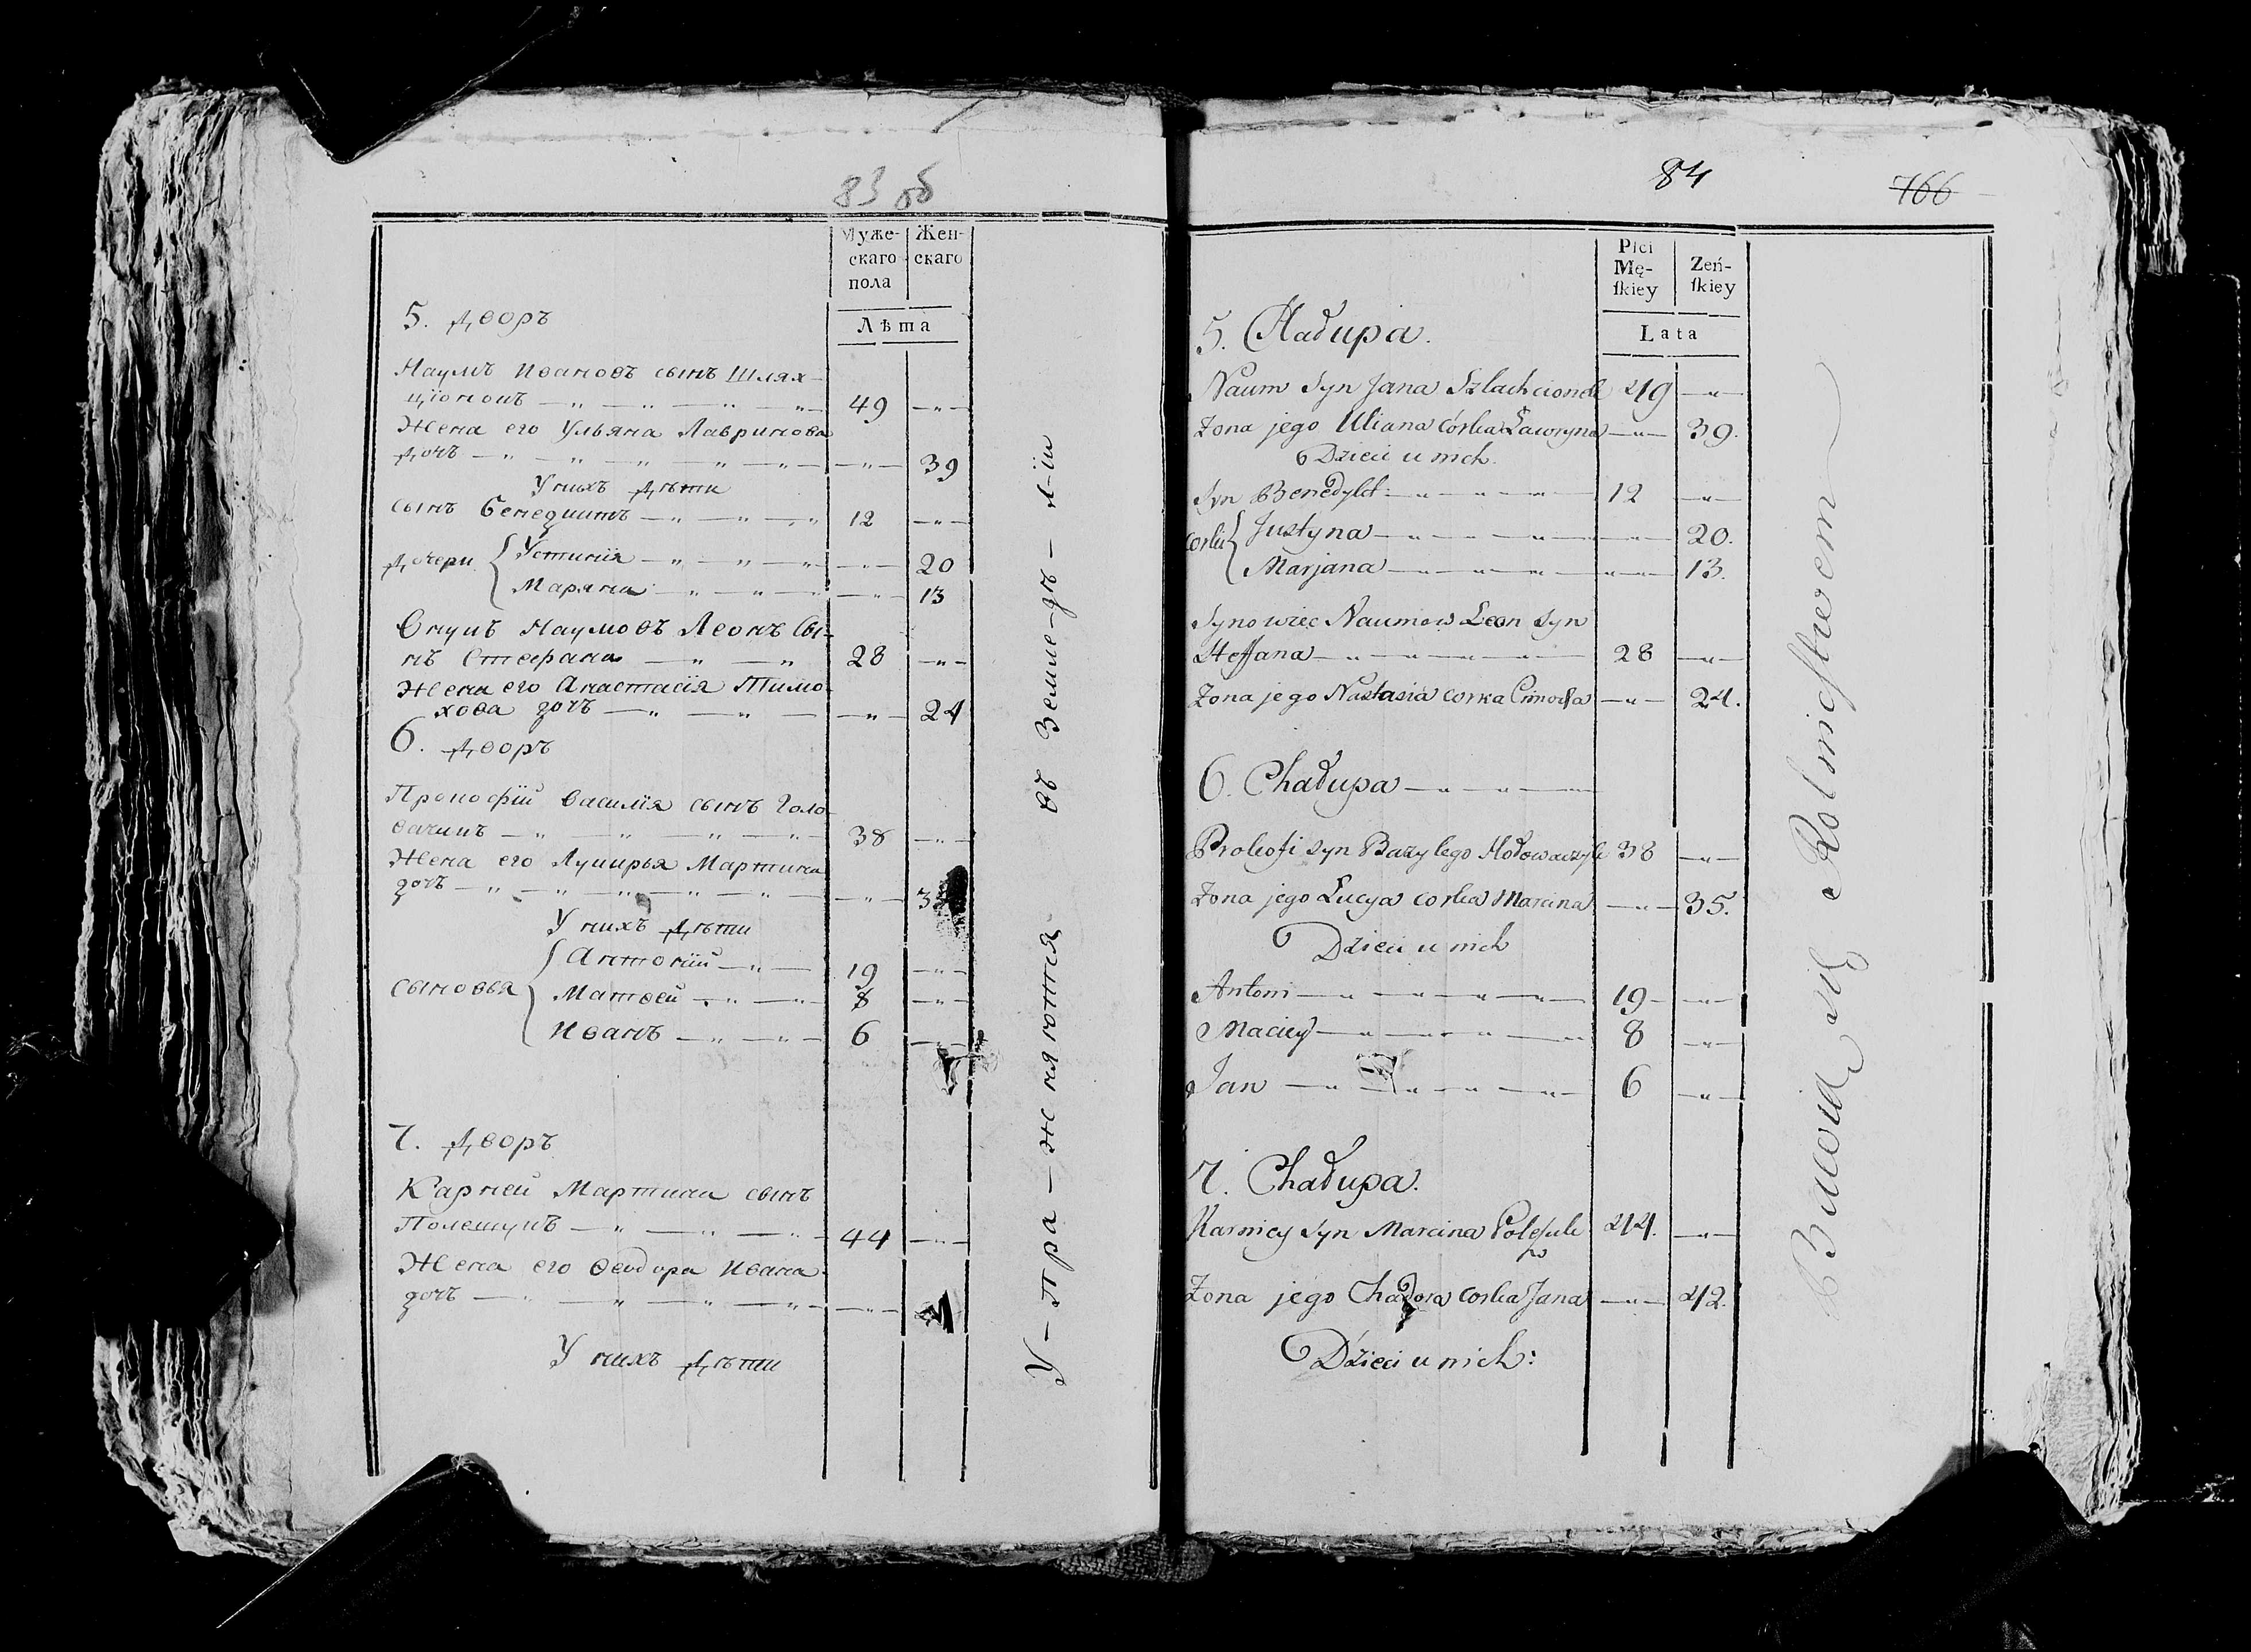 83 об
Муже-
скаго
пола
Жен-
скаго
Лѣта
5. Дворъ
Наумъ Ивановъ сынъ Шлях-
ціонокъ — " — " — " — " 49 — " —
Жена его Ульяна Лавринова
дочь — " — " — " — " — " — 39
У нихъ Дѣти
сынъ Бенедиктъ — " — " — " 12 — " —
Дочери { Устинія — " — " — " — " — 20
Маряна — " — " — " — " — 13
Внукъ Наумовъ Леонъ Сы-
нъ Стефана — " — " 28 — " —
Жена его Анастасія Тимо-
хова дочь — " — " — " — 24
6. Дворъ
Прокофій Василія сынъ Голо
вачикъ — " — " — " — " 38 — " —
Жена его Лукирья Мартина
дочь — " — " — " — " — " — " — 3
У нихъ Дѣти
сыновья { Антоній — " — 19 — " —
Матвей — " — " 8 — " —
Иванъ — " — " — 6 — " —
7. Дворъ
Карней Мартина сынъ
Полешукъ — " — " — " 44 — " —
Жена его Ѳеодора Ивана
дочь — " — " — " — " — " —
У нихъ Дѣти
У-пра-жняются въ Земле-дѣ-л-іи
84
766
Płci
Mę-
ſkiey
Zeń-
ſkiey
Lata
5. Chałupa.
Naum syn Jana Szlachcionek 49 — " —
Żona jego Uliana córka Ławryna — " — 39.
Dzieci u nich.
Syn Benedykt — " — " — " — " — 12 — " —
Corki { Justyna — " — " — " — " — 20.
Marjana — " — " — " — " — 13.
Synowiec Naumow Leon syn
Steffana — " — " — " — " — 28 — " —
Żona jego Nastasia corka Cimocha — " — 24.
6. Chałupa — " — " —
Prokofi syn Bazylego Hołowaczyk 38 — " —
Żona jego Łucya corka Marcina — " — 35.
Dzieci u nich
Antoni — " — " — " — " — 19 — " —
Maciey — " — " — " — " — 8 — " —
Jan — " — " — " — " — 6 — " —
7. Chałupa.
Karniey syn Marcina Poleszuk 44. — " —
Żona jego Chadora corka Jana — " — 42.
Dzieci u nich:
Bawią się Rolnictwem